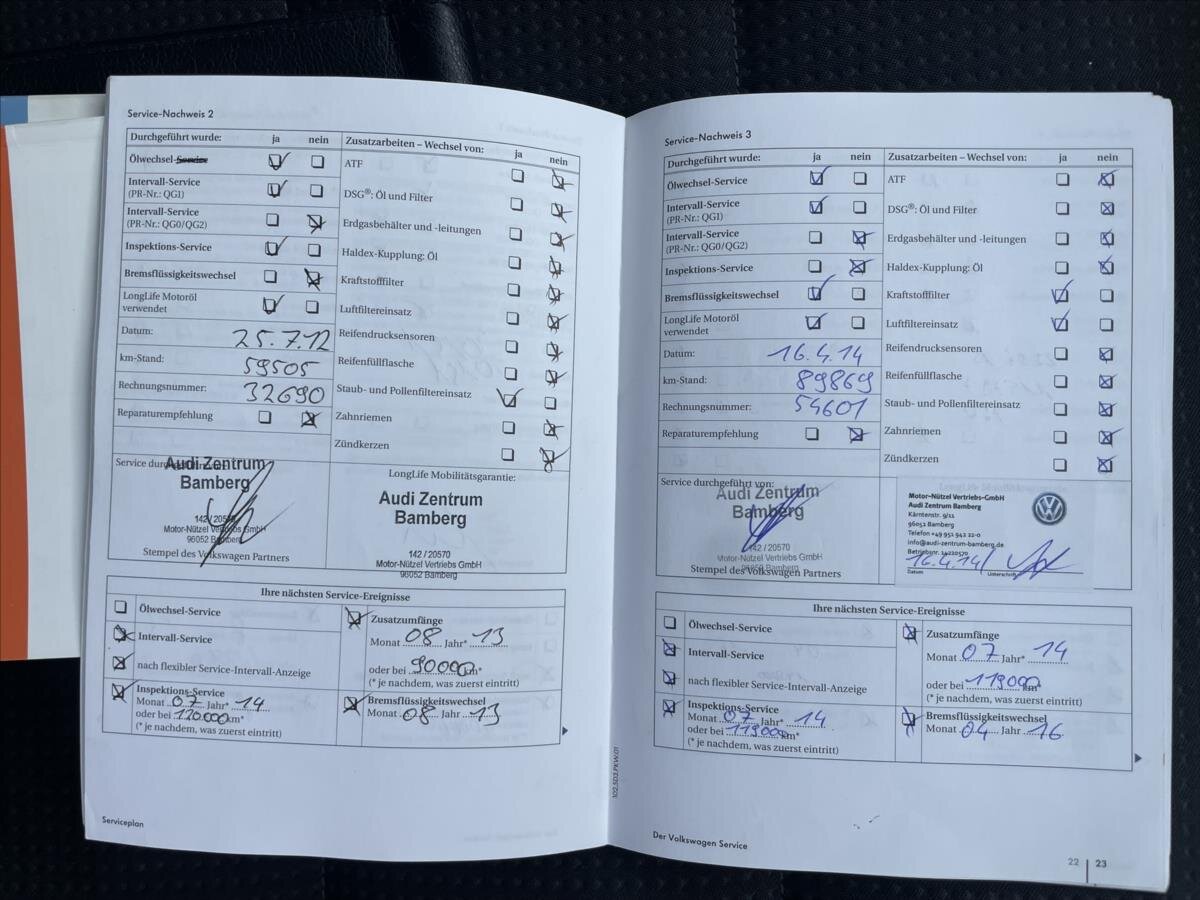 Service-Nachweis 2
Durchgeführt wurde: ja nein
Ölwechsel-Service
Intervall-Service
(PR-Nr.: QG1)
Intervall-Service
(PR-Nr.: QG0/QG2)
Inspektions-Service
Bremsflüssigkeitswechsel
LongLife Motoröl
verwendet
Datum: 25.7.12
km-Stand: 59505
Rechnungsnummer: 32690
Reparaturempfehlung
Zusatzarbeiten – Wechsel von: ja nein
ATF
DSG®: Öl und Filter
Erdgasbehälter und -leitungen
Haldex-Kupplung: Öl
Kraftstofffilter
Luftfiltereinsatz
Reifendrucksensoren
Reifenfüllflasche
Staub- und Pollenfiltereinsatz
Zahnriemen
Zündkerzen
Service
Audi Zentrum
Bamberg
142 / 20570
Motor-Nützel Vertriebs GmbH
96052 Bamberg
Stempel des Volkswagen Partners
LongLife Mobilitätsgarantie:
Audi Zentrum
Bamberg
142 / 20570
Motor-Nützel Vertriebs GmbH
96052 Bamberg
Ihre nächsten Service-Ereignisse
Ölwechsel-Service
Intervall-Service
nach flexibler Service-Intervall-Anzeige
Inspektions-Service
Monat 07 Jahr* 14
oder bei 120.000 km*
(* je nachdem, was zuerst eintritt)
Zusatzumfänge
Monat 08 Jahr* 13
oder bei 90000 km*
(* je nachdem, was zuerst eintritt)
Bremsflüssigkeitswechsel
Monat 08 Jahr 13
Serviceplan
102.5D3.PKW.01
Service-Nachweis 3
Durchgeführt wurde: ja nein
Ölwechsel-Service
Intervall-Service
(PR-Nr.: QG1)
Intervall-Service
(PR-Nr.: QG0/QG2)
Inspektions-Service
Bremsflüssigkeitswechsel
LongLife Motoröl
verwendet
Datum: 16.4.14
km-Stand: 89869
Rechnungsnummer: 54601
Reparaturempfehlung
Zusatzarbeiten – Wechsel von: ja nein
ATF
DSG®: Öl und Filter
Erdgasbehälter und -leitungen
Haldex-Kupplung: Öl
Kraftstofffilter
Luftfiltereinsatz
Reifendrucksensoren
Reifenfüllflasche
Staub- und Pollenfiltereinsatz
Zahnriemen
Zündkerzen
Service durchgeführt von:
Audi Zentrum
Bamberg
142 / 20570
Motor-Nützel Vertriebs GmbH
96052 Bamberg
Stempel des Volkswagen Partners
Motor-Nützel Vertriebs-GmbH
Audi Zentrum Bamberg
Kärntenstr. 9/11
96052 Bamberg
Telefon +49 951 942 22-0
info@audi-zentrum-bamberg.de
Betriebsnr. 14220570
16.4.14
Datum Unterschrift
Ihre nächsten Service-Ereignisse
Ölwechsel-Service
Intervall-Service
nach flexibler Service-Intervall-Anzeige
Inspektions-Service
Monat 07 Jahr* 14
oder bei 119000 km*
(* je nachdem, was zuerst eintritt)
Zusatzumfänge
Monat 07 Jahr* 14
oder bei 119000 km*
(* je nachdem, was zuerst eintritt)
Bremsflüssigkeitswechsel
Monat 04 Jahr 16
Der Volkswagen Service
22 | 23